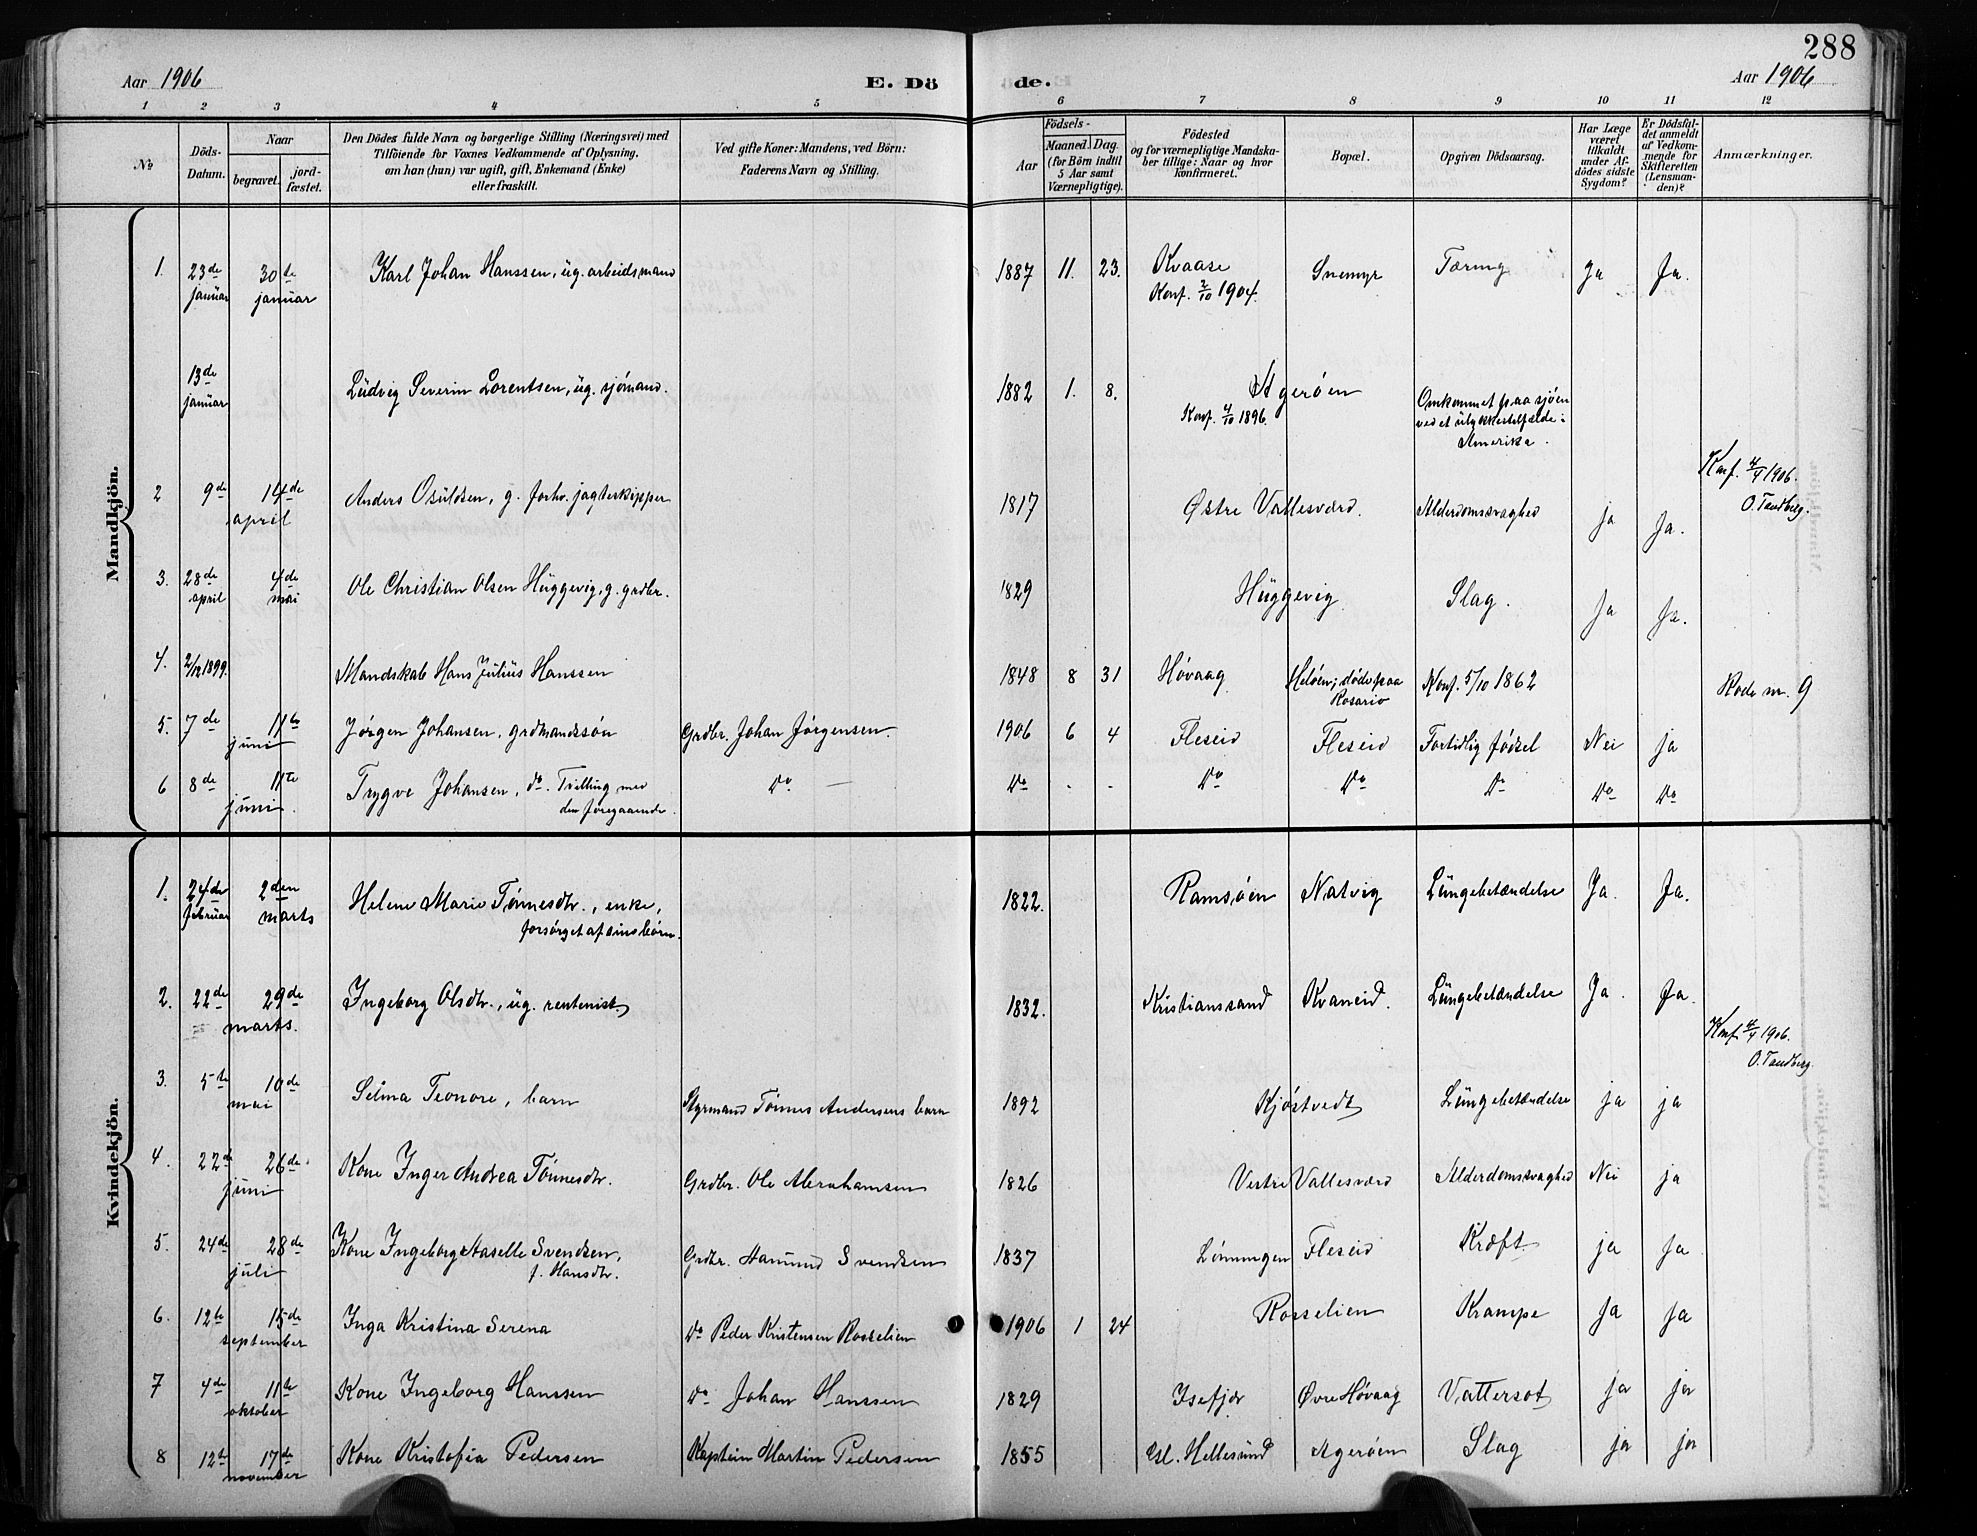 288
Aar 1906 E. Dö de. Aar 1906
1 2 3 4 5 6 7 8 9 10 11 12
No.
Döds-Datum.
Naar
begravet.
jord-fæstet.
Den Dödes fulde Navn og borgerlige Stilling (Næringsvei) med
Tilföiende for Voxnes Vedkommende af Oplysning,
om han (hun) var ugift, gift, Enkemand (Enke)
eller fraskilt.
Ved gifte Koner: Mandens, ved Börn:
Faderens Navn og Stilling.
Födsels-
Aar
Maaned. Dag.
(for Börn indtil
5 Aar samt
Værnepligtige).
Födested
og for værnepligtige Mandska-
ber tillige: Naar og hvor
konfirmeret.
Bopæl.
Opgiven Dödsaarsag.
Har Læge
været
tilkaldt
under Af-
dödes sidste
Sygdom?
Er Dödsfal-
det anmeldt
af Vedkom-
mende for
Skifteretten
(Lensman-
den)?
Anmærkninger.
Mandkjön.
1. 23de januar 30te januar Karl Johan Hanssen, ug. arbeidsmand 1887 11. 23. Kvaase Snemyr Tæring Ja Ja.
Konf. 2/10 1904.
13de januar Ludvig Severin Lorentsen, ug. sjömand. 1882 1. 8. Agerøen Omkommet paa sjøen
Konf. 4/10 1896. ved et ulykkestilfælde i
Amerika.
2 9de 14de april Anders Osuldsen, g. forhv. jagtskipper 1817 Østre Vallesværd. Alderdomssvaghed ja Ja. Konf. 4/4 1906.
O. Tandberg.
3. 28de april 4de mai Ole Christian Olsen Huggevig, g. grdbr. 1829 Huggevig Slag. Ja Ja.
4. 2/12 1899. Mandskab Hans Julius Hanssen 1848 8 31 Høvaag Heløen; døde paa Rosario Konf. 5/10 1862 Rode nr. 9
5. 7de 11te juni Jørgen Johansen, grdmandssøn Grdbr. Johan Jørgensen. 1906 6 4 Fleseid Fleseid Fortidlig fødsel Nei ja
6 8de 11te juni Trygve Johansen, do. Trilling med Do — Do - - Do Do Do Do Do
den foregaaende.
Kvindekjön.
1. 24de februar 2den marts Helene Marie Tønnesdtr., enke, 1822. Ramsøen Natvig Lungebetændelse Ja. Ja.
forsørget af sine børn.
2. 22de 29de marts. Ingeborg Olsdtr., ug. rentenist 1832. Kristianssand Kvaneid. Lungebetændelse Ja. Ja.
Konf. 4/4 1906.
O. Tandberg.
3. 5te 10de mai Selma Teonore, barn Styrmand Tønnes Andersens barn 1892 Kjøstvedt Lungebetændelse ja ja
4. 22de 26de juni Kone Inger Andrea Tønnesdtr. Grdbr. Ole Abrahamsen 1826 Vestre Vallesværd Alderdomssvaghed Nei ja
5. 24de 28de juli Kone Ingeborg Aaselle Svendsen, Grdbr. Aamund Svendsen 1837 Lønningen Fleseid Kræft ja Ja
f. Hansdtr.
6. 12te 15de september Inga Kristina Serena Do Peder Kristensen Rosselien 1906 1 24 Rosselien Krampe Ja Ja
7 4de 11te oktober Kone Ingeborg Hanssen Do Johan Hanssen 1829 Isefjær Øvre Høvaag Vattersot ja ja
8 12te 17de november Kone Kristofia Pedersen Kaptein Martin Pedersen 1855 Gl. Hellesund Agerøen Slag ja ja